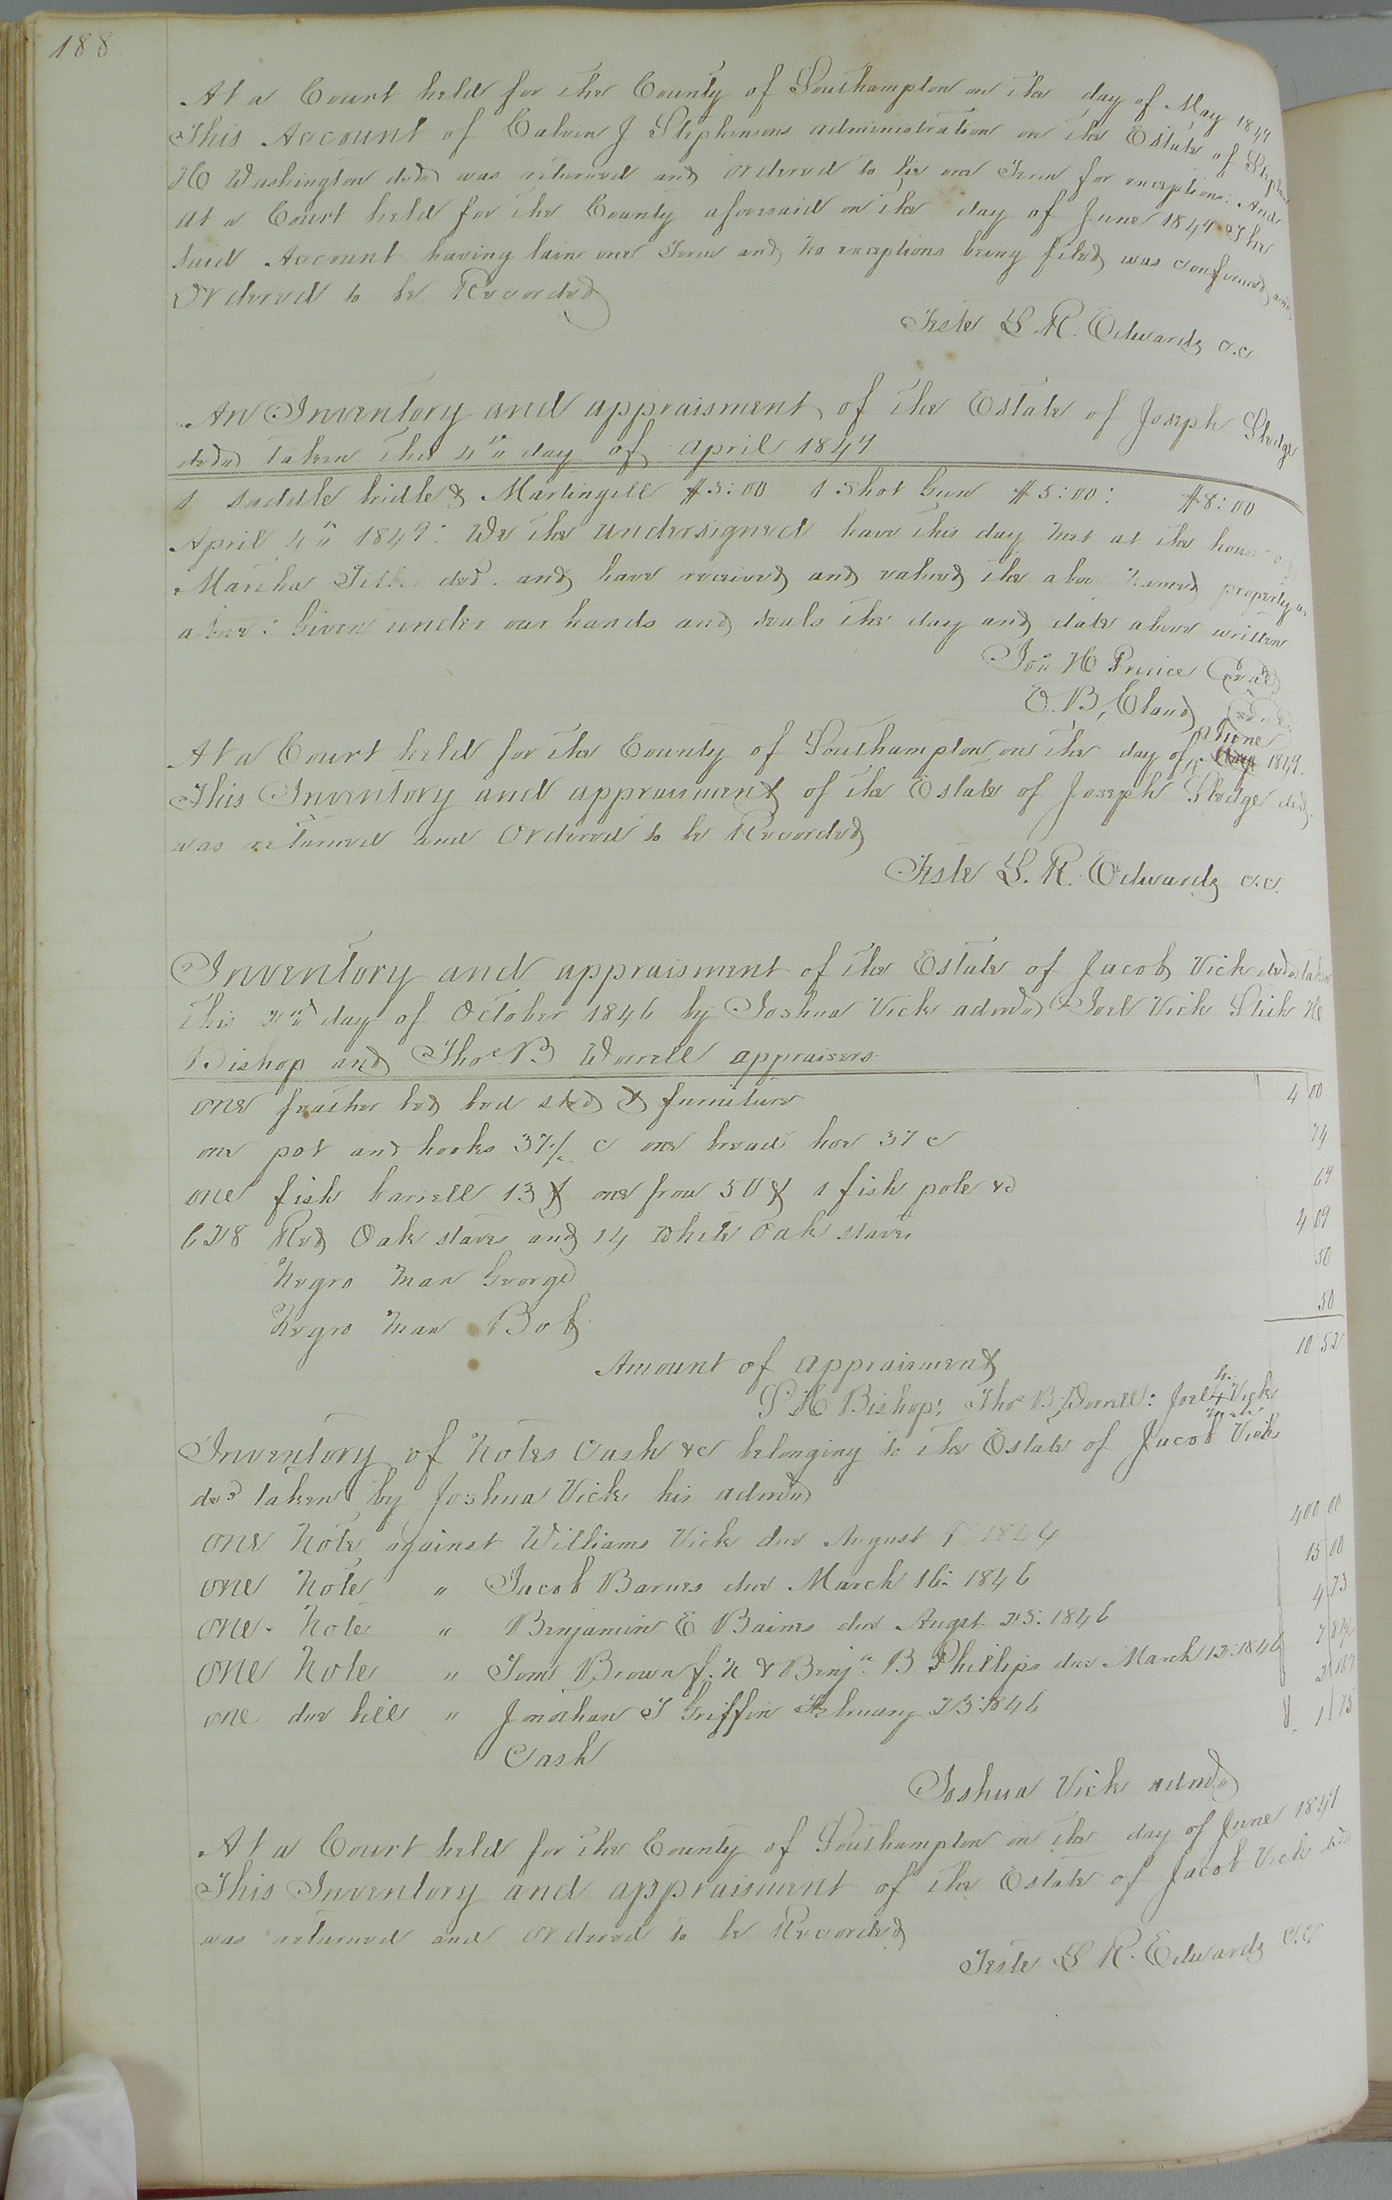 188
At a Court held for the County of Southampton on the day of May 1847
This Account of Calvin J Stephensons administration on the Estate of
H Washington decd was returned and ordered to lie one Term for exceptions: And
at a Court held for the County aforesaid on the day of June 1847 The
said Account having lain one Term and no exceptions being filed was confirmed and
Ordered to be Recorded
Teste L. R. Edwards c.c
An Inventory and appraisment of the Estate of Joseph Sledge
decd taken the 4th day of April 1847
1 saddle bridle & Martingill $3:00 1 Shot Gun $5:00: $8:00
April 4th 1847: We the undersigned have this day met at the house of
Martha decd. and have received and valued the above named property as
above: Given under our hands and seals the day and date above written
Jos H Prince Seal
O. B, Claud Seal
At a Court held for the County of Southampton on the day of June 1847.
This Inventory and appraisment of the Estate of Joseph Sledge decd.
was returned and Ordered to be Recorded
Teste L. R. Edwards c.c.
Inventory and appraisment of the Estate of Jacob Vick decd taken
this 2nd day of October 1846 by Joshua Vick admr Joel Vick H
Bishop and Thos B Worrell appraisers
one feather bed bed sted & furniture 4 00
one pot and hooks 37/ c one broad hoe 37 c 74
one fish barrell 13 & one frow 50 & 1 fish pole &c 69
628 Red Oak staves and 14 white Oak staves 4 09
Negro man George 50
Negro man Bob 50
Amount of appraisment 10 52
S H Bishop: Thos B. Worrell: Joel his Vick
mark
Inventory of Notes Cash &c belonging to the Estate of Jacob Vick
decd taken by Joshua Vick his admr
one Note against Williams Vick due August 1 1844 400 00
one Note " Jacob Barnes due March 16: 1846 15 00
one Note " Benjamin E Baines due Augst 25: 1846 4 73
one Note " Tom Brown f. n & Benjn. B Phillips due March 12: 1846
one due bill " Jonathan T Griffin February 23: 1846
Cash 1 75
Joshua Vick admr
At a Court held for the County of Southampton on the day of June 1847
This Inventory and appraisment of the Estate of Jacob Vick decd
was returned and Ordered to be Recorded
Teste L R. Edwards c.c.